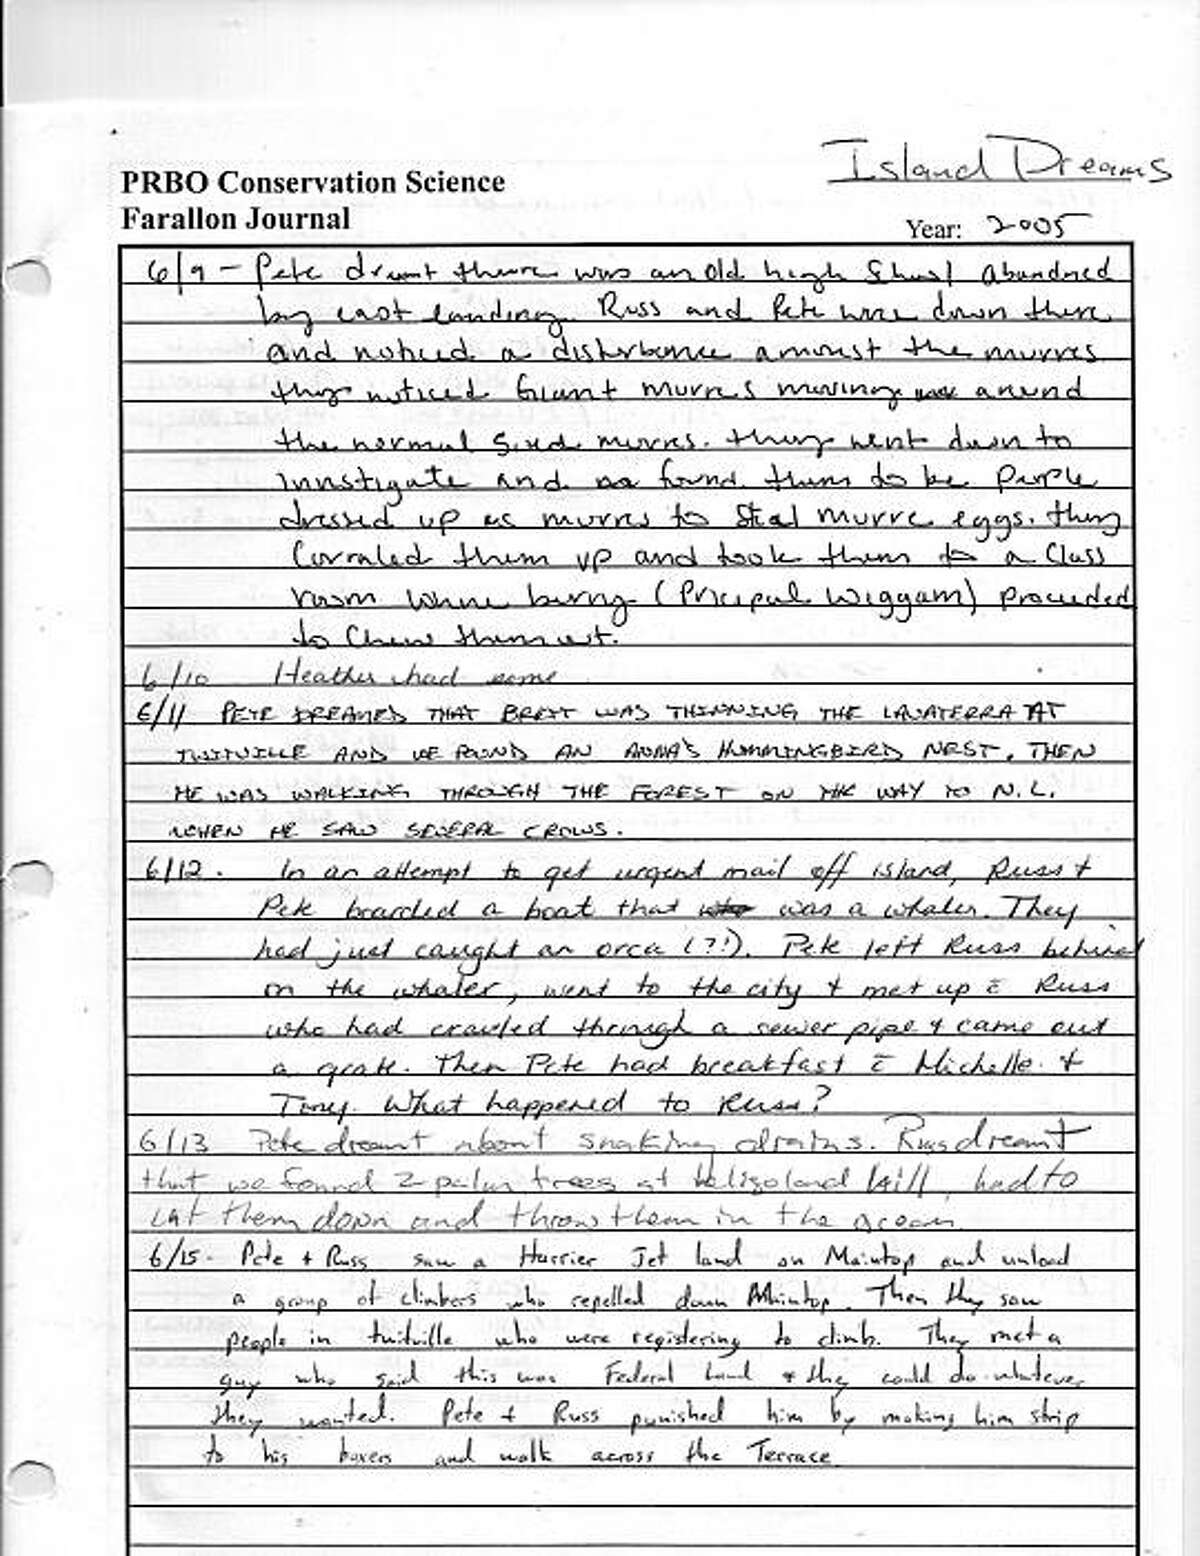 Island Dreams
PRBO Conservation Science
Farallon Journal
Year: 2005
6/9 - Pete dreamt there was an old high School abandoned
by east landing. Russ and Pete were down there
and noticed a disturbance amonst the murres
they noticed Giant murres moving around
the normal sized murres. they went down to
investigate and found them to be people
dressed up as murres to steal murre eggs. they
Corraled them up and took them to a Class
room where (Pricipal Wiggam) proceeded
to Chew them out.
6/10 Heather had some
6/11 PETE DREAMED THAT BRETT WAS THINNING THE LAVATERRA AT
TWITVILLE AND WE FOUND AN ANNA'S HUMMINGBIRD NEST. THEN
HE WAS WALKING THROUGH THE FOREST ON THE WAY TO N.L.
WHEN HE SAW SEVERAL CROWS.
6/12. In an attempt to get urgent mail off island, Russ +
Pete boarded a boat that was a whaler. They
had just caught an orca (?!). Pete left Russ behind
on the whaler, went to the city + met up c̄ Russ
who had crawled through a sewer pipe + came out
a grate. Then Pete had breakfast c̄ Michelle +
Tony. What happened to Russ?
6/13 Pete dreamt about snaking drains. Russ dreamt
that we found 2 palm trees at heligoland hill, had to
cut them down and throw them in the ocean
6/15- Pete + Russ saw a Harrier Jet land on Maintop and unload
a group of climbers who repelled down Maintop. Then they saw
people in twitville who were registering to climb. They met a
guy who said this was Federal Land + they could do whatever
they wanted. Pete + Russ punished him by making him strip
to his boxers and walk across the Terrace